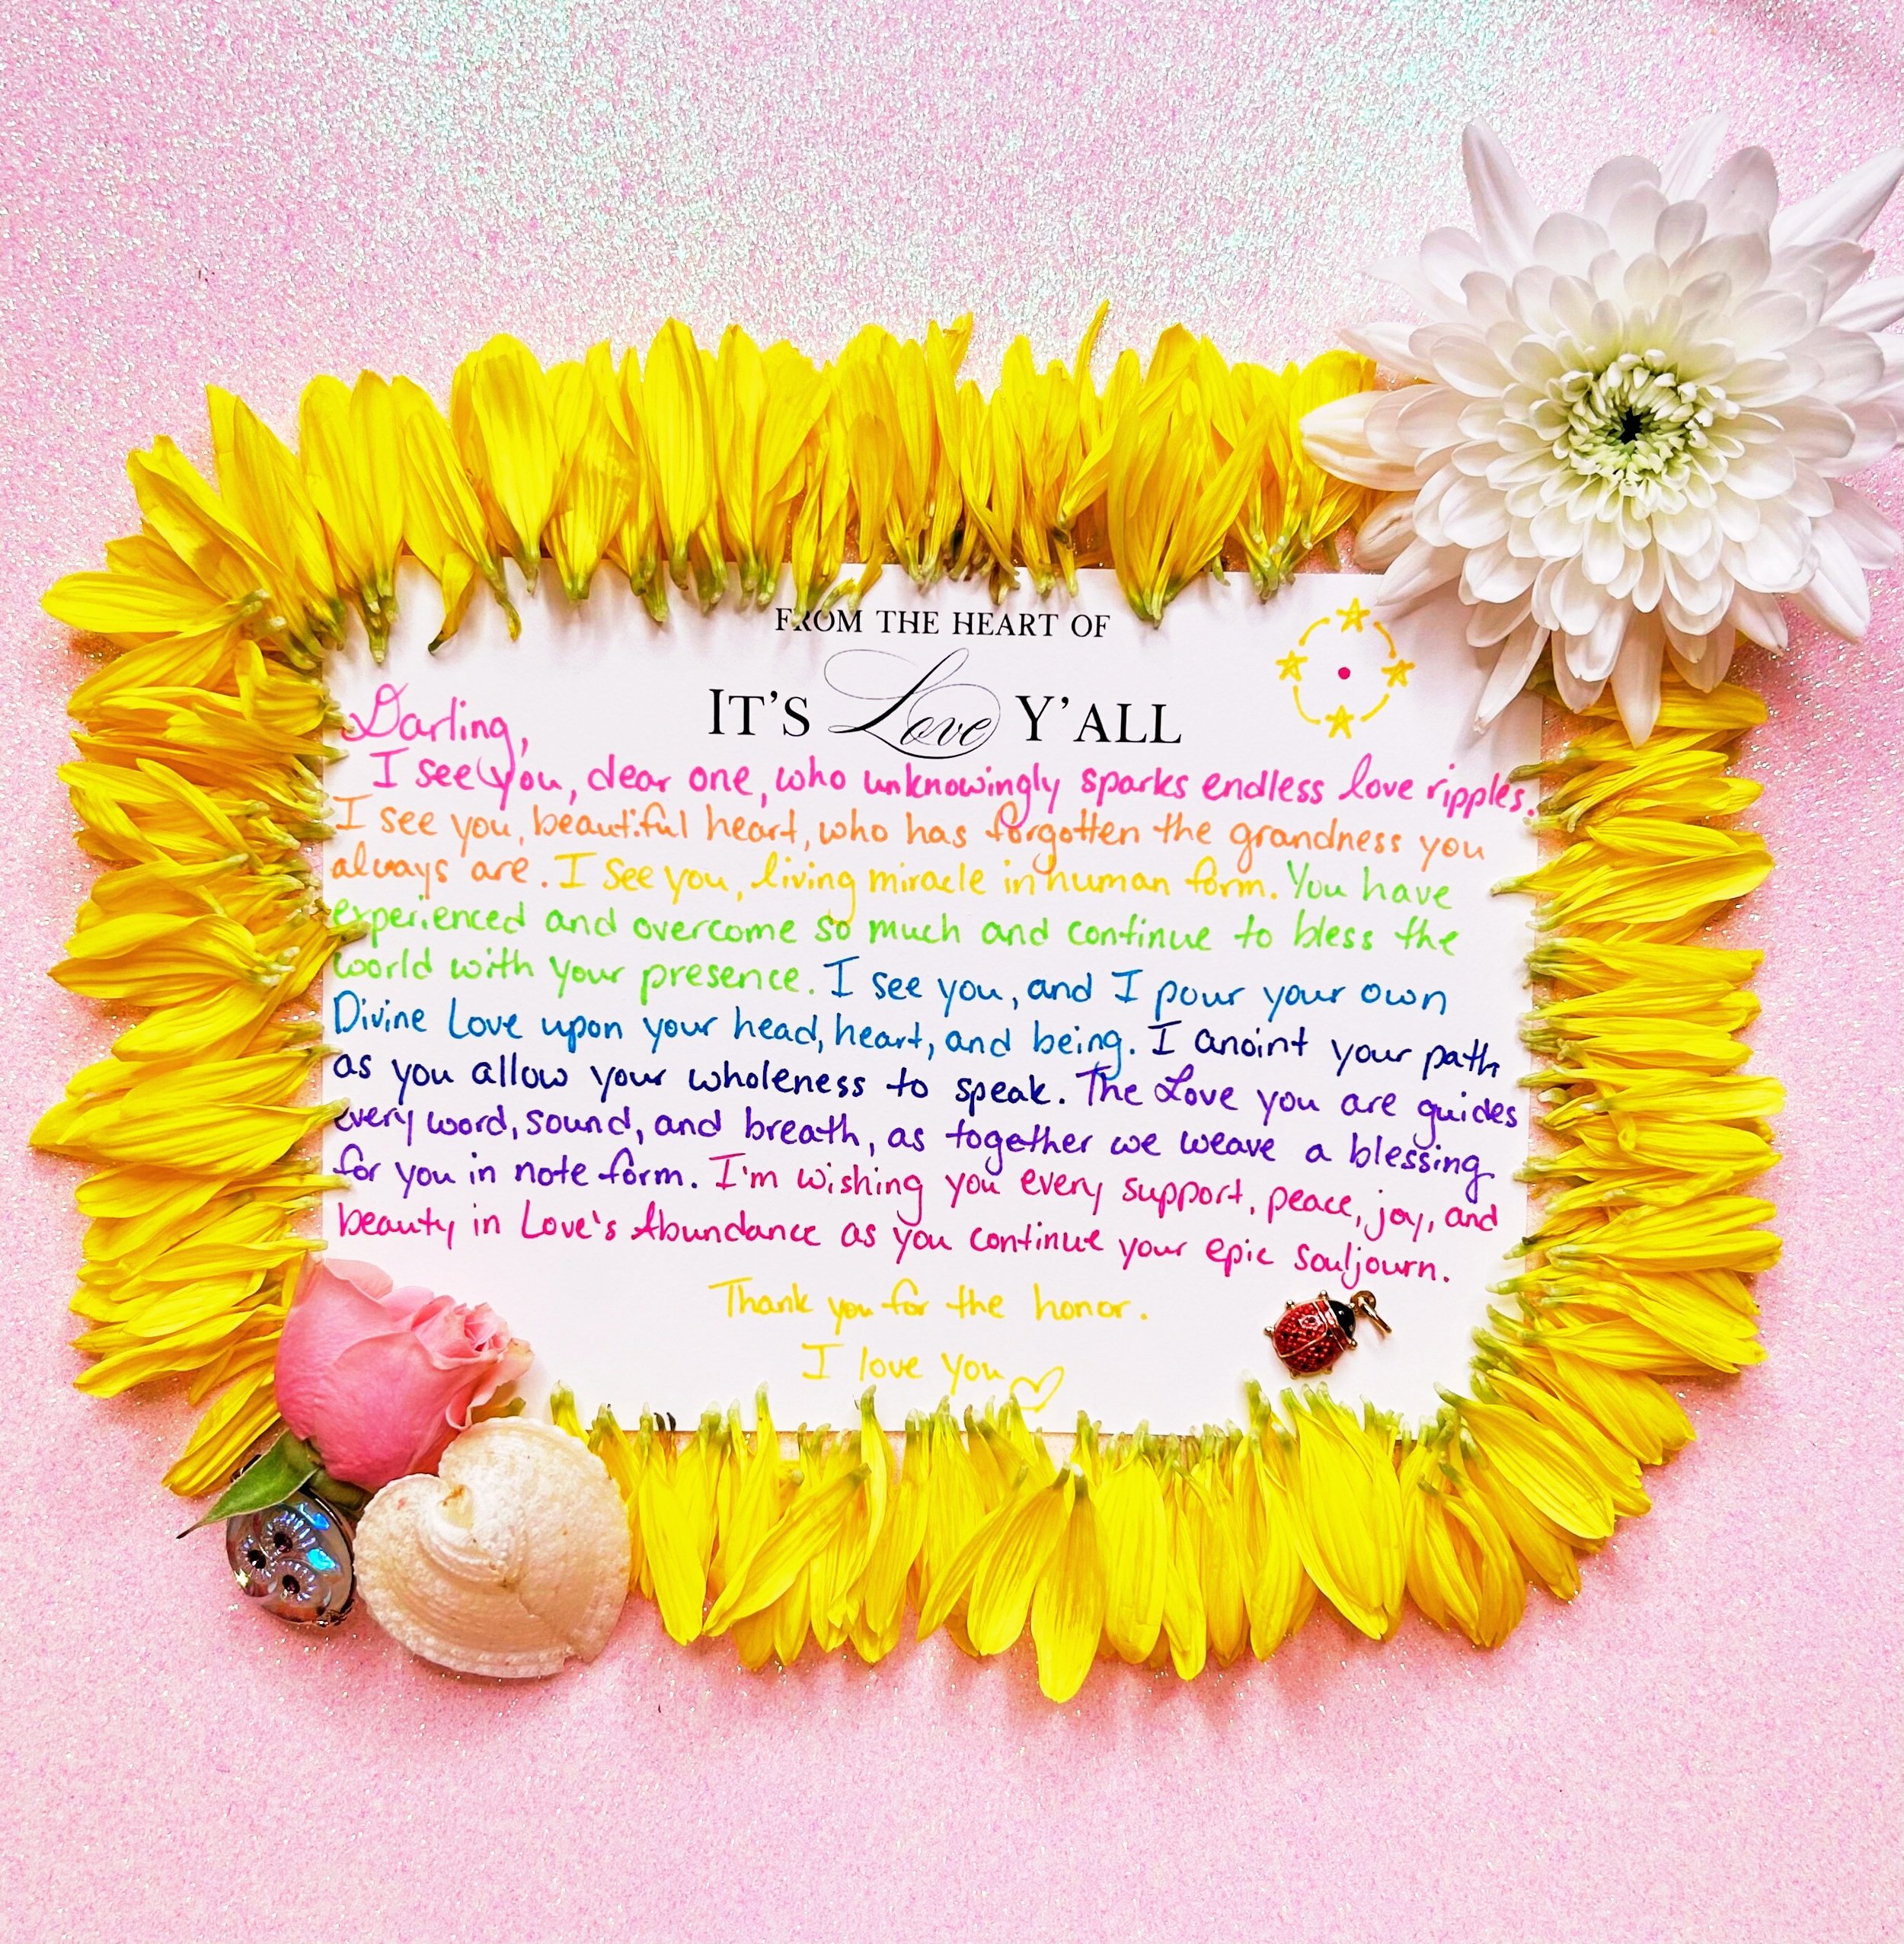 FROM THE HEART OF
IT'S Love Y'ALL
Darling,
I see you, dear one, who unknowingly sparks endless love ripples.
I see you, beautiful heart, who has forgotten the grandness you
always are. I see you, living miracle in human form. You have
experienced and overcome so much and continue to bless the
world with your presence. I see you, and I pour your own
Divine Love upon your head, heart, and being. I anoint your path
as you allow your wholeness to speak. The Love you are guides
every word, sound, and breath, as together we weave a blessing
for you in note form. I'm wishing you every support, peace, joy, and
beauty in Love's Abundance as you continue your epic souljourn.
Thank you for the honor.
I love you